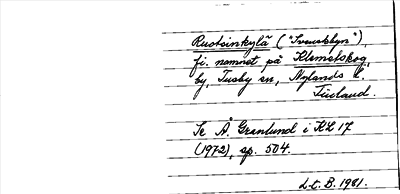 Ruotsinkylä ("Svenskbyn"),
fi. namnet på Klemetskog,
by, Tusby sn, Nylands l.
Finland.
Se Å. Granlund i KL 17
(1972), sp. 504.
L-t. B. 1981.